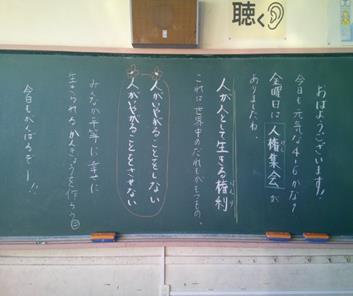 聴く
おはようございます!!
今日も元気な4の6かな?
金曜日に人権集会が
ありましたね。
人が人として生きる権利
けんり
これは世界中のだれもがもつもの。
人がいやがることをしない
人がいやがることをさせない
みんなが平等に幸せに
生きられるかんきょうを作ろう
今日もがんばるぞー!!